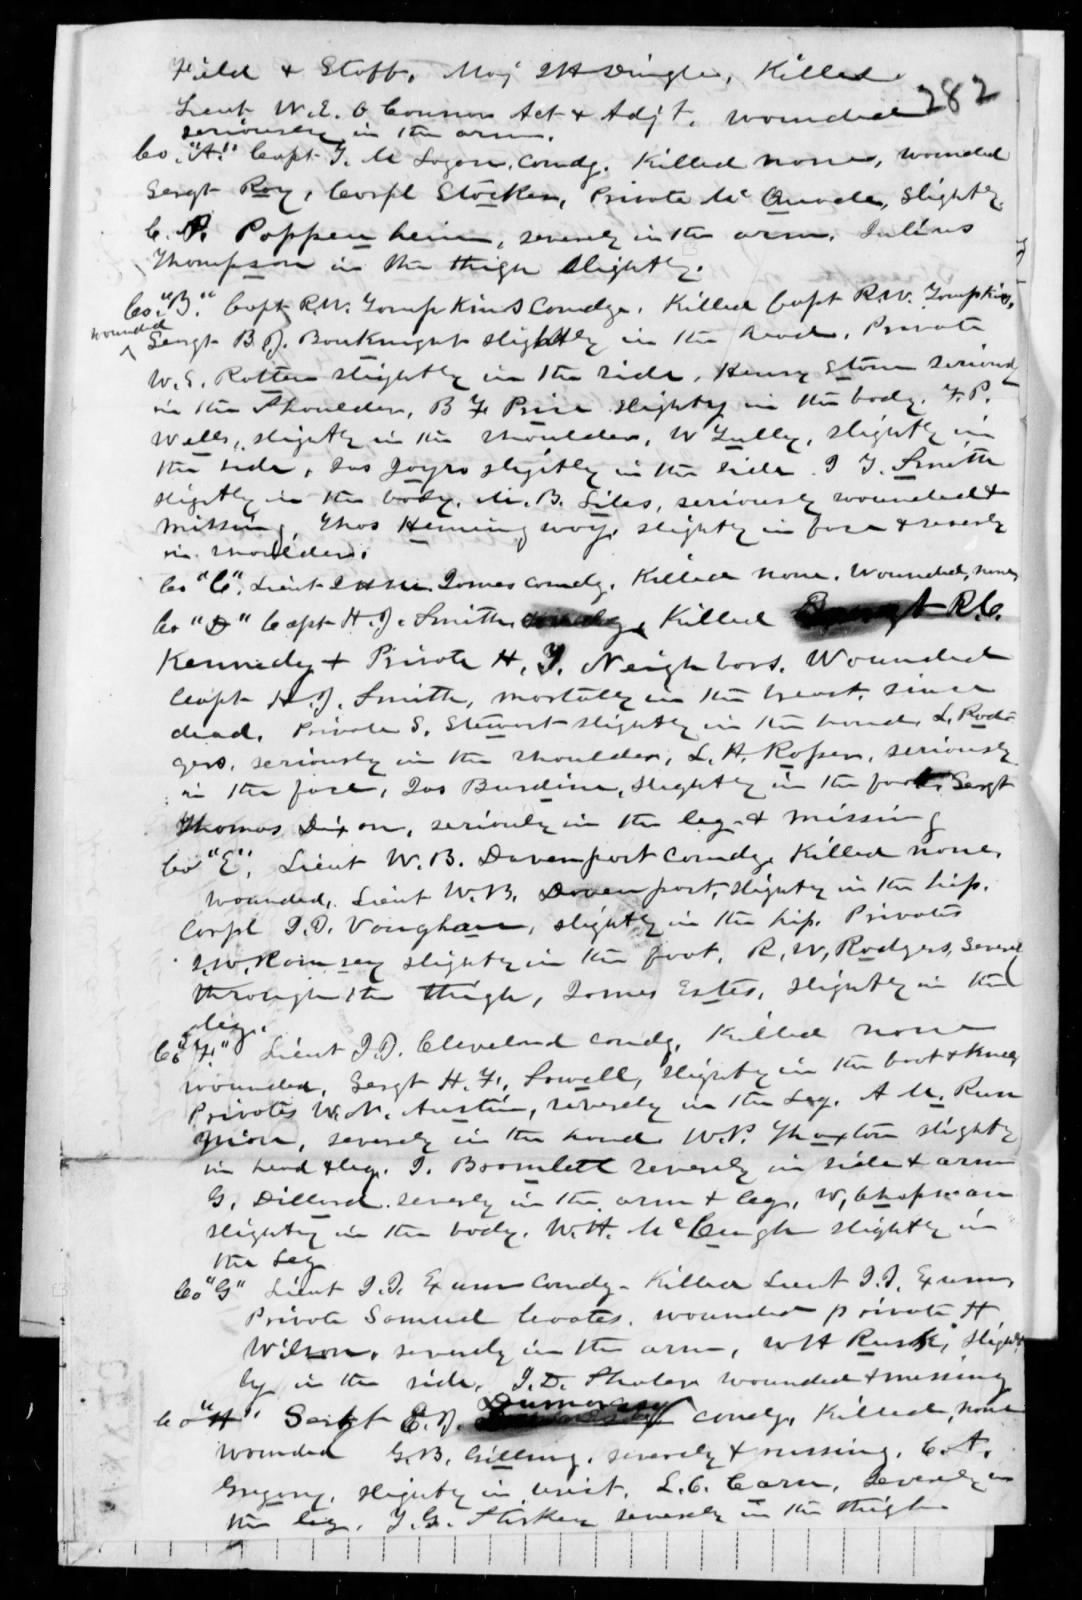 Field & Staff, Maj J H Dingle, Killed
282
Lieut W. E. O Connor Act & Adjt. wounded
seriously in the arm.
Co. "A." Capt T. M Logan, comdg. Killed none, wounded
Sergt Roy, Corpl Stocken, Private Mc Quade, slightly,
C. P. Poppenheim, severely in the arm. Julius
Thompson in the thigh slightly.
Co. "B." Capt R.W. Tompkins Comdg. Killed Capt R.W. Tompkins,
wounded
Sergt B J. Bouknight slightly in the head. Private
W. E. Rotten slightly in the side, Henry Stone seriously
in the shoulder, B F Price slightly in the body. F. P.
Wells, slightly in the shoulder, W Tully, slightly in
the side, Jas Joyro slightly in the side J T. Smith
slightly in the body, M. B. Liles, seriously wounded &
missing, Thos Hemingway, slightly in face & severly
in shoulder.
Co "C", Lieut James comdg. Killed none. Wounded, none,
Co "D" Capt H. J. Smith comdg, Killed Sergt R.C.
Kennedy & Private H. T. Neighbors. Wounded
Capt H. J. Smith, mortally in the breast, since
dead. Private S. Stewart slightly in the hand, L. Rod-
gers, seriously in the shoulder, L. A. Rosser, seriously
in the face, Jas Burdine, slightly in the foot, Sergt
Thomas Dixon, seriously in the leg & missing
Co "E", Lieut W. B. Davenport Comdg. Killed none,
wounded, Lieut W. B. Davenport, slightly in the hip.
Corpl J. D. Vaughan, slightly in the hip. Privates
J. W. Ramsey slightly in the foot, R, W, Rodgers, severely
through the thigh, James Estes, slightly in the
leg.
Co "F" Lieut J. D. Cleveland comdg, Killed none
wounded, Sergt H. F. Sowell, slightly in the foot & knee
Privates W. N. Austin, severely in the Leg. A M. Run
yion, severely in the hand W. P. Thaxton slightly
in head & leg. J. Bramlett severely in side & arm
G. Dillard severly in the arm & leg, W, Chapman
slightly in the body. W. H. McCeugh slightly in
the Leg
Co "G" Lieut J. J. Exum Comdg - Killed Lieut J. J. Exum,
Private Samuel Coates. wounded private H
Wilson, severely in the arm, W H Rusk, slight-
ly in the side, J. D. wounded & missing
Dumoray
Co "H" Sergt E. J. comdg, Killed, none
wounded G. B. Gilling, severely & missing, C. A.
Gregory, slightly in wrist, L. C. Carn, severely in
the leg, J. G. severely in the thigh